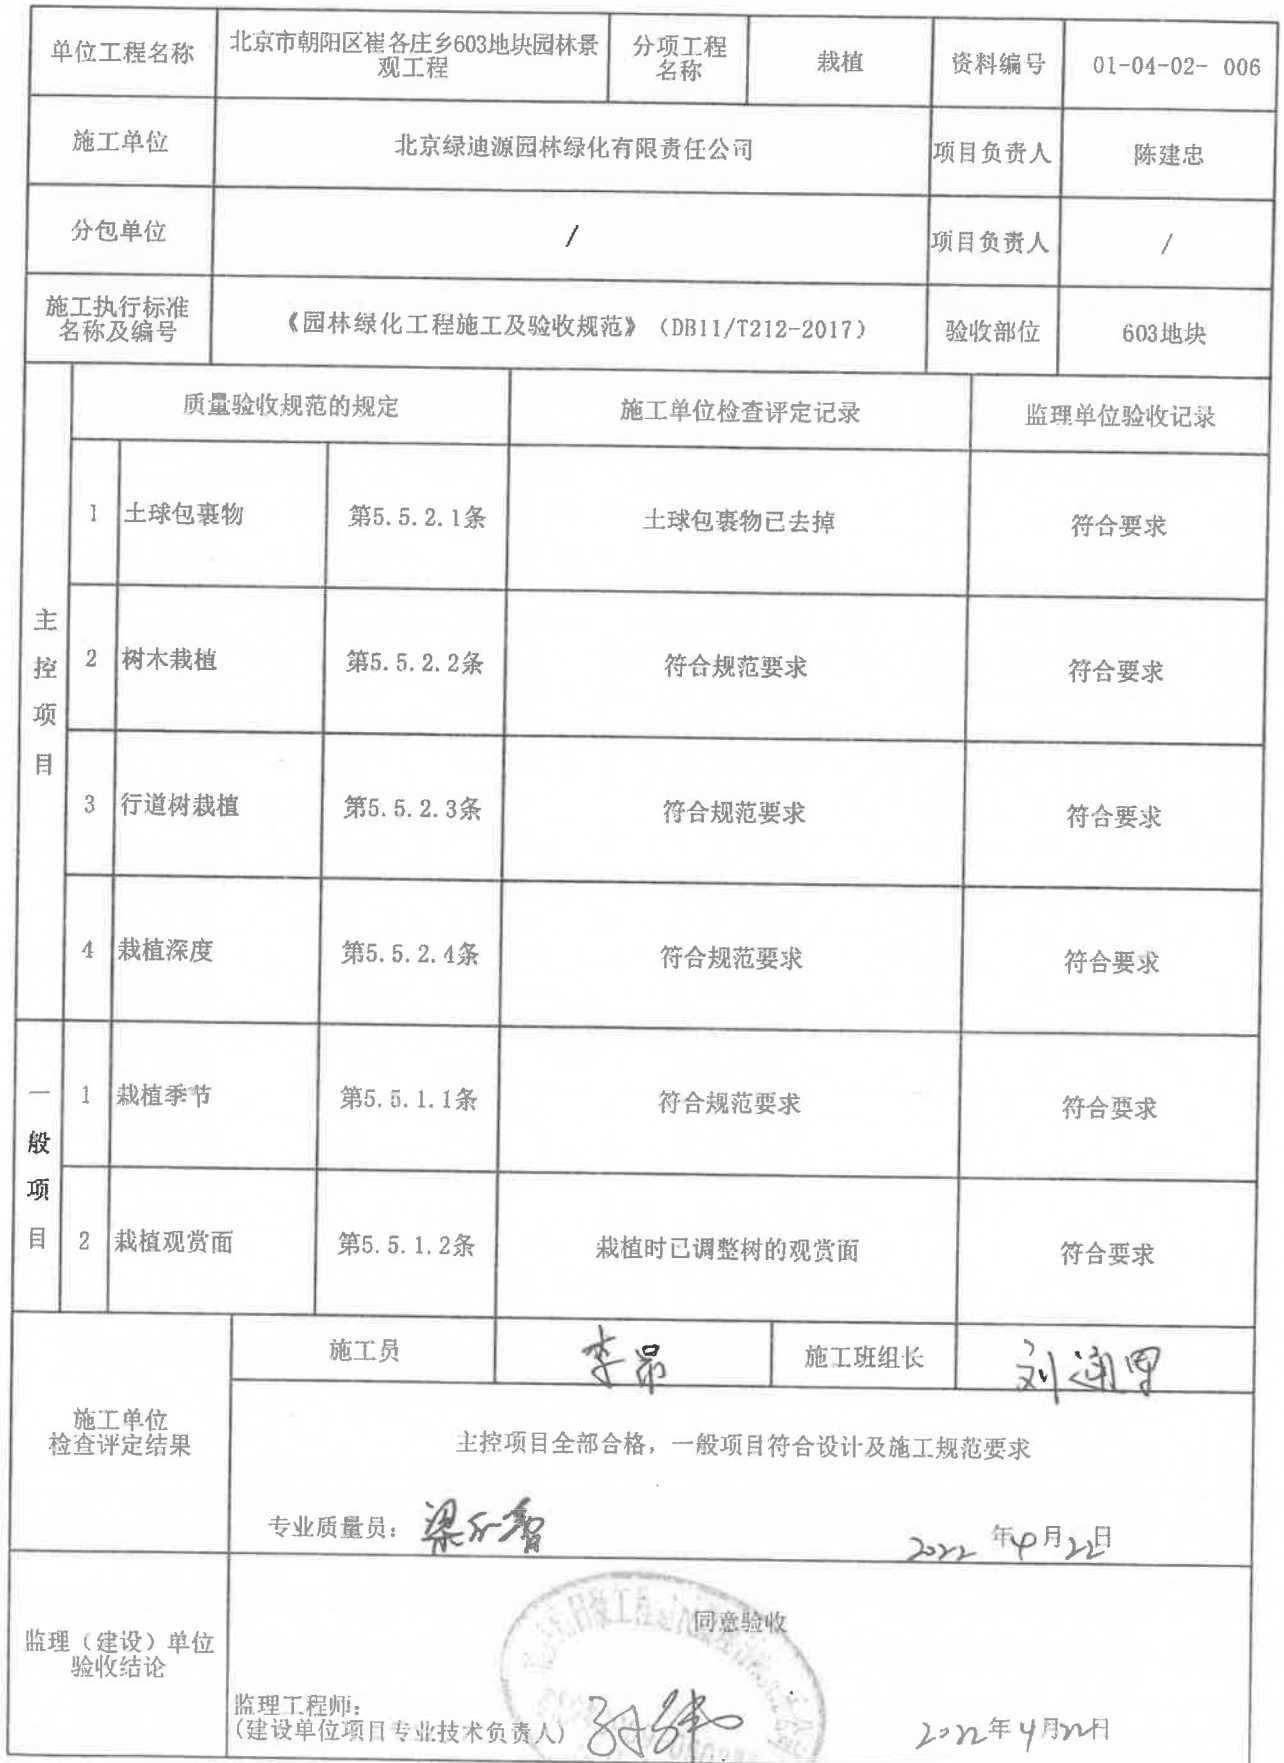 单位工程名称 北京市朝阳区崔各庄乡603地块园林景观工程 分项工程名称 栽植 资料编号 01-04-02- 006
施工单位 北京绿迪源园林绿化有限责任公司 项目负责人 陈建忠
分包单位 / 项目负责人 /
施工执行标准名称及编号 《园林绿化工程施工及验收规范》（DB11/T212-2017） 验收部位 603地块
主控项目
质量验收规范的规定 施工单位检查评定记录 监理单位验收记录
1 土球包裹物 第5.5.2.1条 土球包裹物已去掉 符合要求
2 树木栽植 第5.5.2.2条 符合规范要求 符合要求
3 行道树栽植 第5.5.2.3条 符合规范要求 符合要求
4 栽植深度 第5.5.2.4条 符合规范要求 符合要求
一般项目
1 栽植季节 第5.5.1.1条 符合规范要求 符合要求
2 栽植观赏面 第5.5.1.2条 栽植时已调整树的观赏面 符合要求
施工单位检查评定结果
施工员 施工班组长
主控项目全部合格，一般项目符合设计及施工规范要求
专业质量员： 2022 年4月22日
监理（建设）单位验收结论
同意验收
监理工程师：
（建设单位项目专业技术负责人） 2022年4月22日